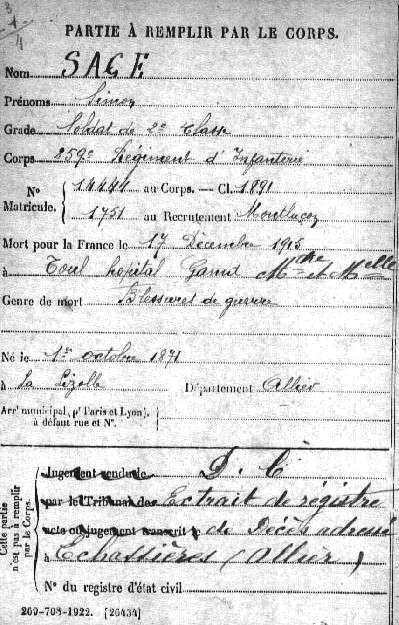 3
1
4
PARTIE À REMPLIR PAR LE CORPS.
Nom SAGE
Prénoms Simon
Grade Soldat de 2e Classe
Corps 259e Régiment d'Infanterie
N° Matricule. 14444 au Corps. — Cl. 1891
1751 au Recrutement Montluçon
Mort pour la France le 17 Décembre 1915
à Toul hopital Gama Mdre et Melle
Genre de mort Blessures de guerre
Né le 1er octobre 1871
à La Lizolle Département Allier
Arrt municipal (pr Paris et Lyon),
à défaut rue et N°.
Cette partie
n'est pas à remplir
par le Corps.
Jugement rendu le D. C
par le Tribunal de Extrait de régistre
acte ou jugement transcrit le de Décès adressé
Echassières (Allier)
N° du registre d'état civil
269-708-1922. [26434]